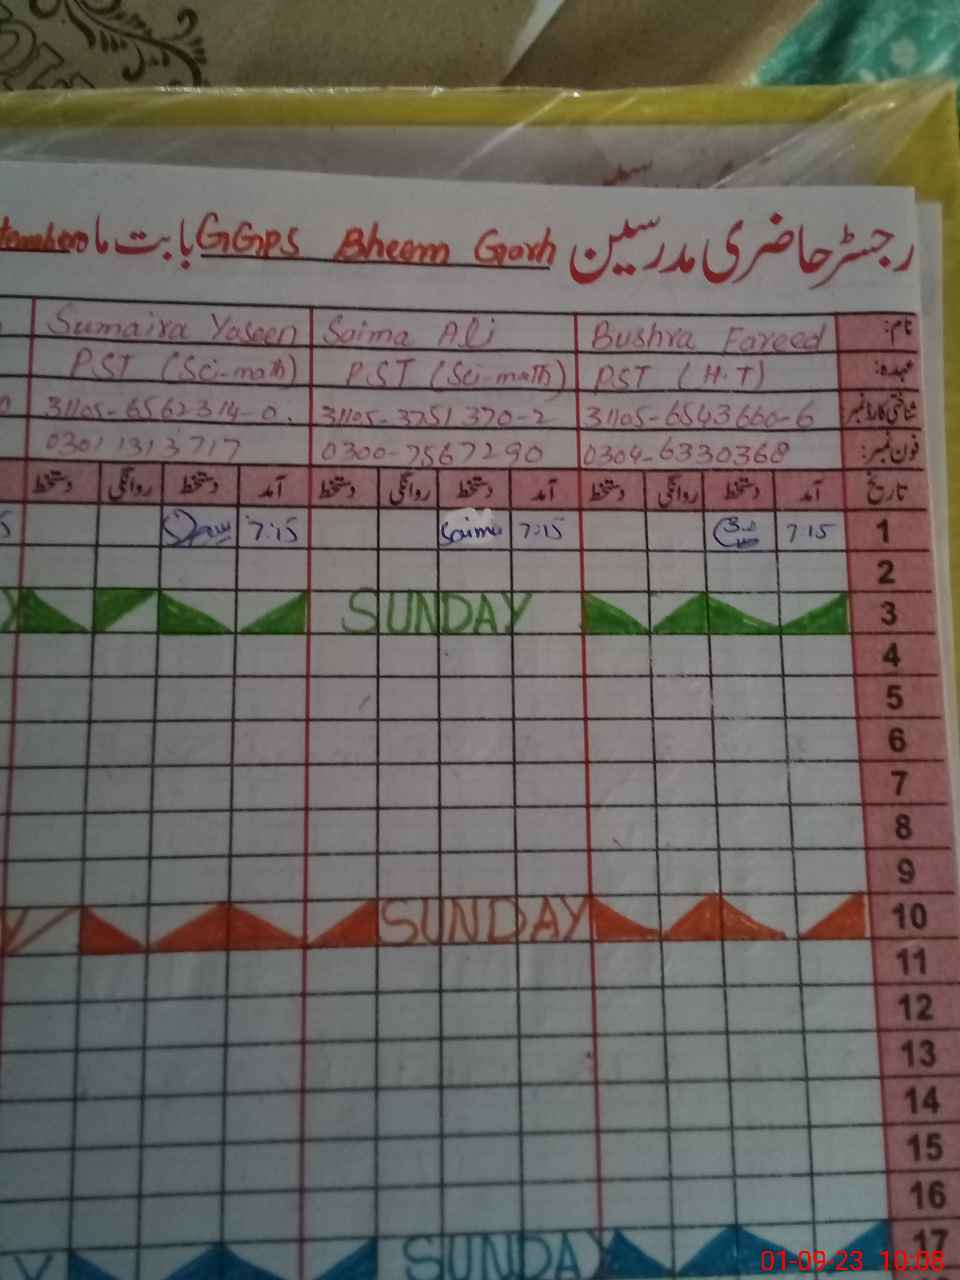 رجسٹر حاضری مدرسین GGPS Bheem Garh بابت ماہ
نام: Bushra Fareed Saima Ali Sumaira Yaseen
عہدہ: PST (H.T) PST (Sci-math) PST (Sci-math)
شناختی کارڈ نمبر: 31105-6543660-6 31105-3751370-2 31105-6562314-0
فون نمبر: 0304-6330368 0300-7567290 03011313717
تاریخ آمد دستخط روانگی دستخط آمد دستخط روانگی دستخط آمد دستخط روانگی دستخط
1 7:15 7:15 Saima 7:15
2
3 SUNDAY
4
5
6
7
8
9
10 SUNDAY
11
12
13
14
15
16
17 SUNDAY
01-09-23 10:08